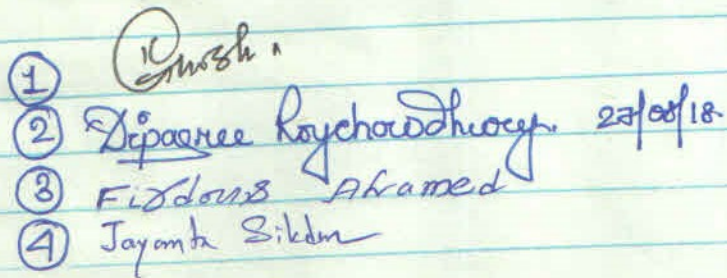 ① Ghosh.
② Dipasree Roychowdhury. 27/08/18.
③ Firdous Ahamed
④ Jayanta Sikdar